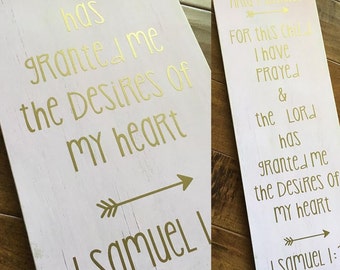 has
granted me
the desires of
my heart
1 Samuel 1:
for this child
I have
prayed
&
the Lord
has
granted me
the desires of
my heart
1 Samuel 1: